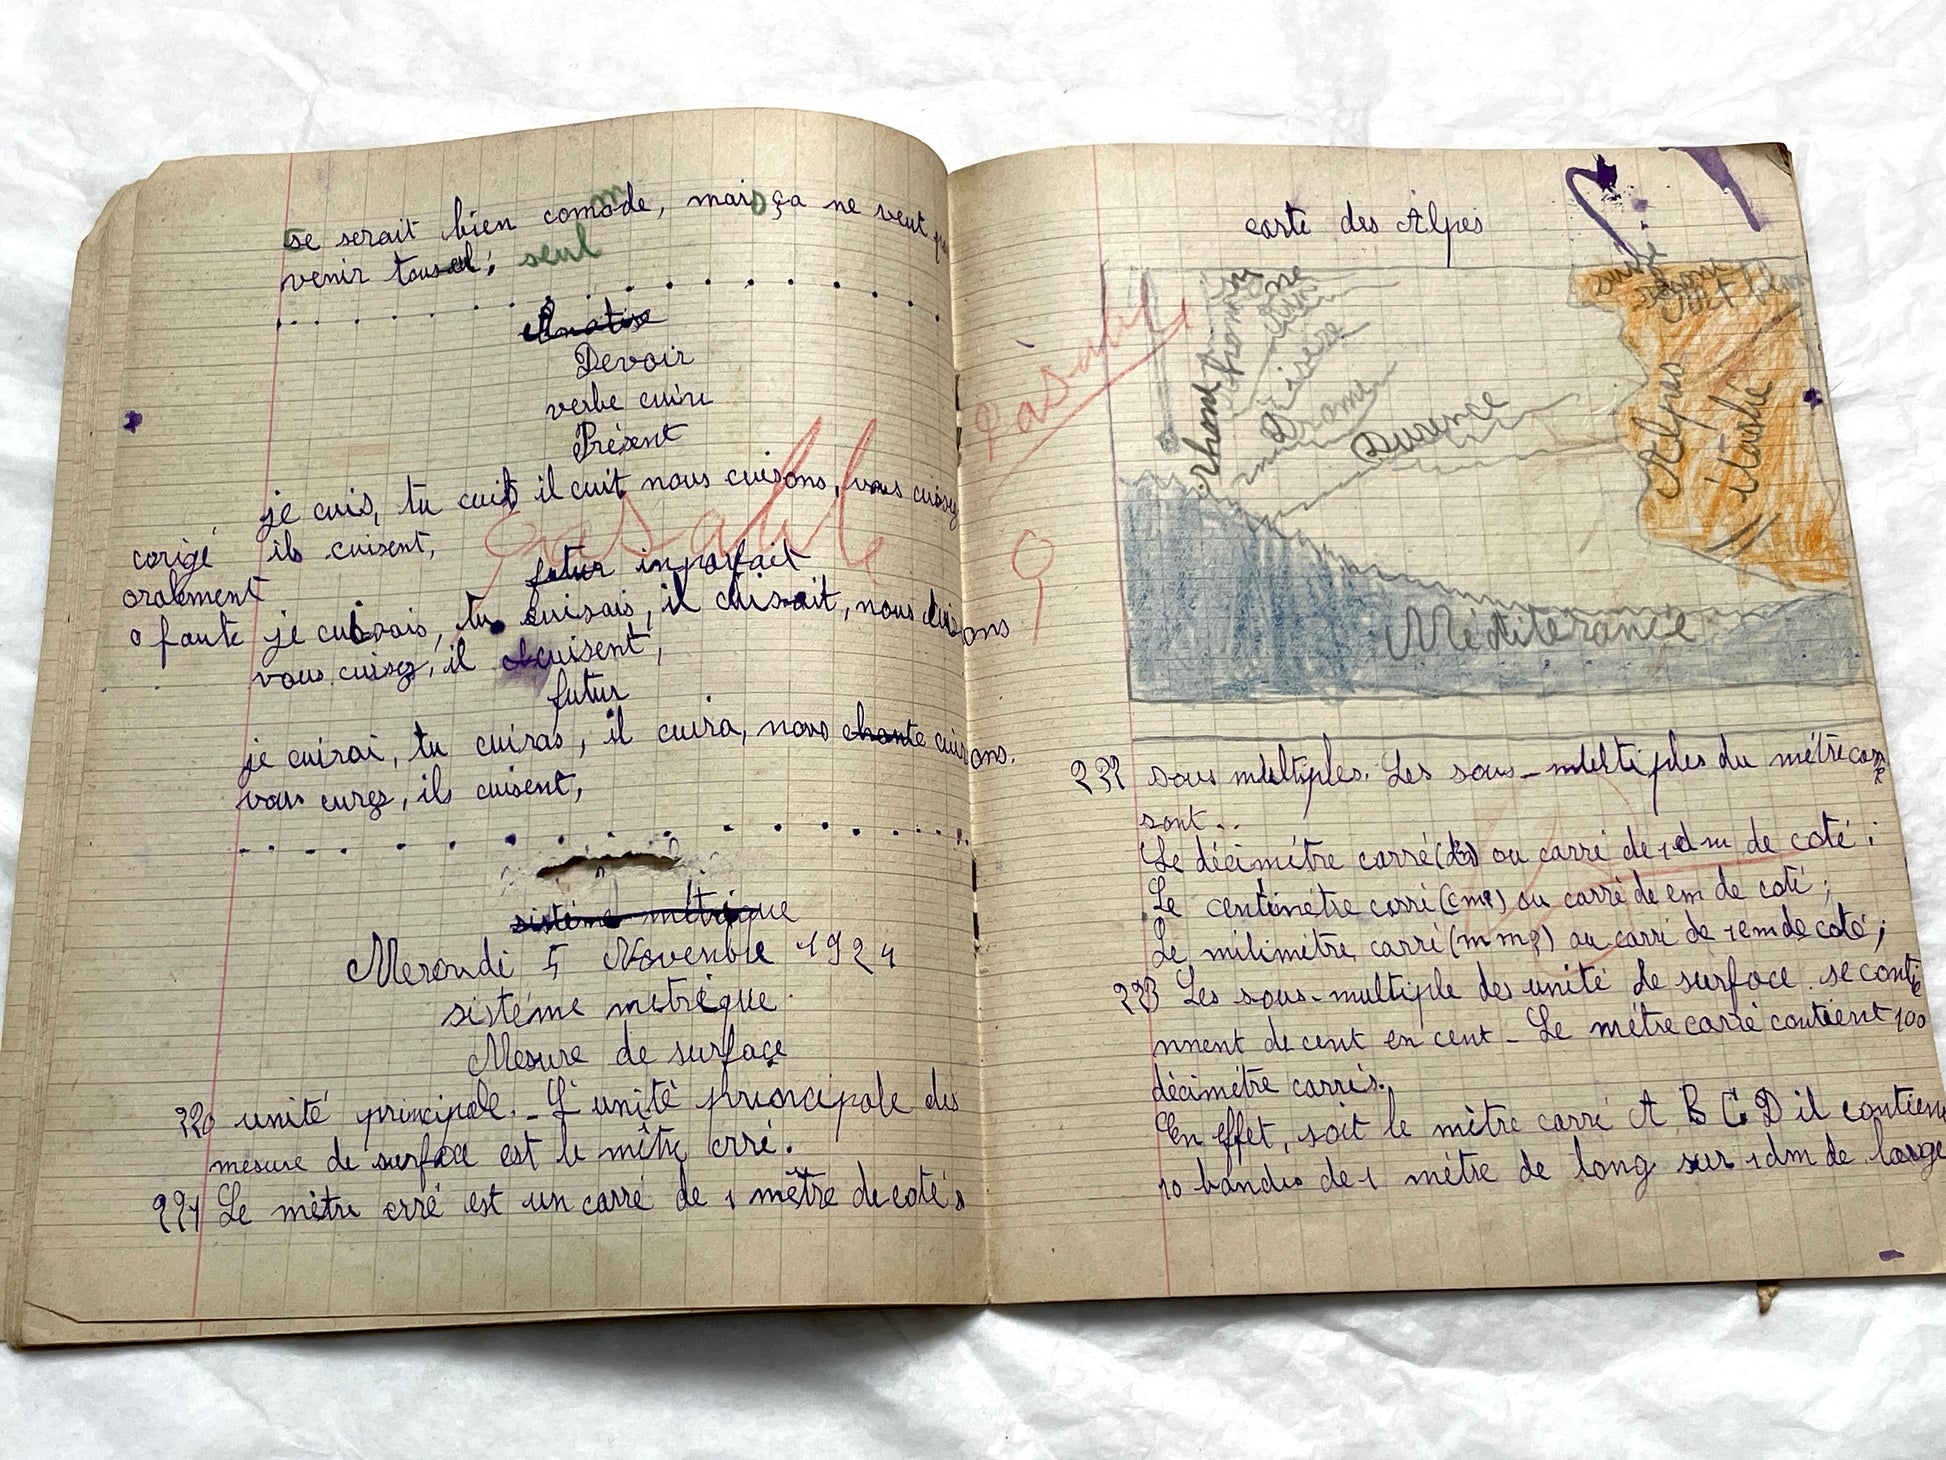 se serait bien comode, mais ça ne veut pas
venir tousel; seul
Devoir
verbe cuire
Présent
je cuis, tu cuis il cuit nous cuisons, vous cuisez
corigé ils cuisent,
oralement
futur inparfait
0 faute je cuisais, tu cuisais, il cuisait, nous cuisons
vous cuisez, il cuisent,
futur
je cuirai, tu cuiras, il cuira, nous chante cuisons.
vous curez, ils cuisent,
Passable
sistéme métrique
Mercredi 5 Novenbre 1924
sistéme métrique
Mesure de surface
220 unité principale. _ L'unité principale des
mesure de surface est le mètre crré.
221 Le mètre crré est un carré de 1 mètre de cotés
carte des Alpes
Passable
9
Rhone
Isère
Drome
Durence
Alpes
itouhé
Méditérance
222 sous multiples. Les sous-multiples du métre carré
sont..
Le décimétre carré (        ) ou carré de 1 dm de coté;
Le centimetre carré (cmq) ou carré de cm de coté;
Le milimétre carré (mmq) ou carré de 1cm de coté;
223 Les sous-multiple des unité de surface se contie
nnent de cent en cent _ Le métre carré contient 100
décimétre carrés.
En effet, soit le mètre carré A B C D il contient
10 bandes de 1 métre de long sur 1dm de large